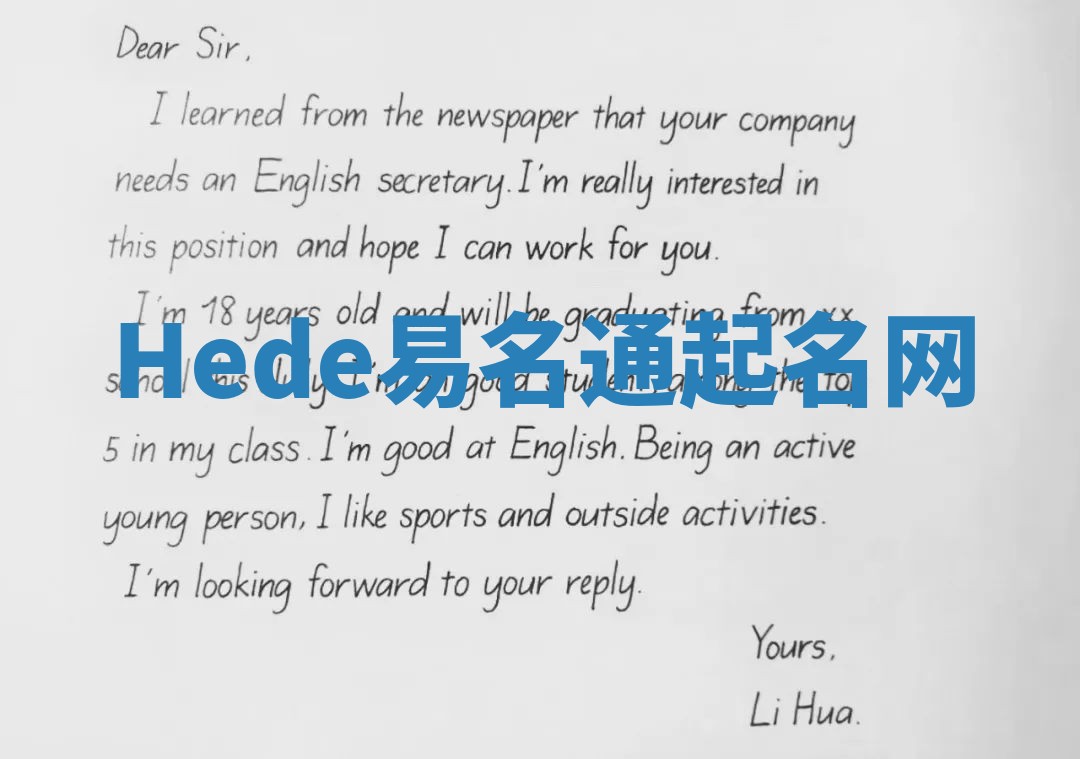 Dear Sir,
I learned from the newspaper that your company
needs an English secretary. I'm really interested in
this position and hope I can work for you.
I'm 18 years old and will be graduating from xx
Hede易名通起名网
school this July. I'm a good student, among the top
5 in my class. I'm good at English. Being an active
young person, I like sports and outside activities.
I'm looking forward to your reply.
Yours,
Li Hua.